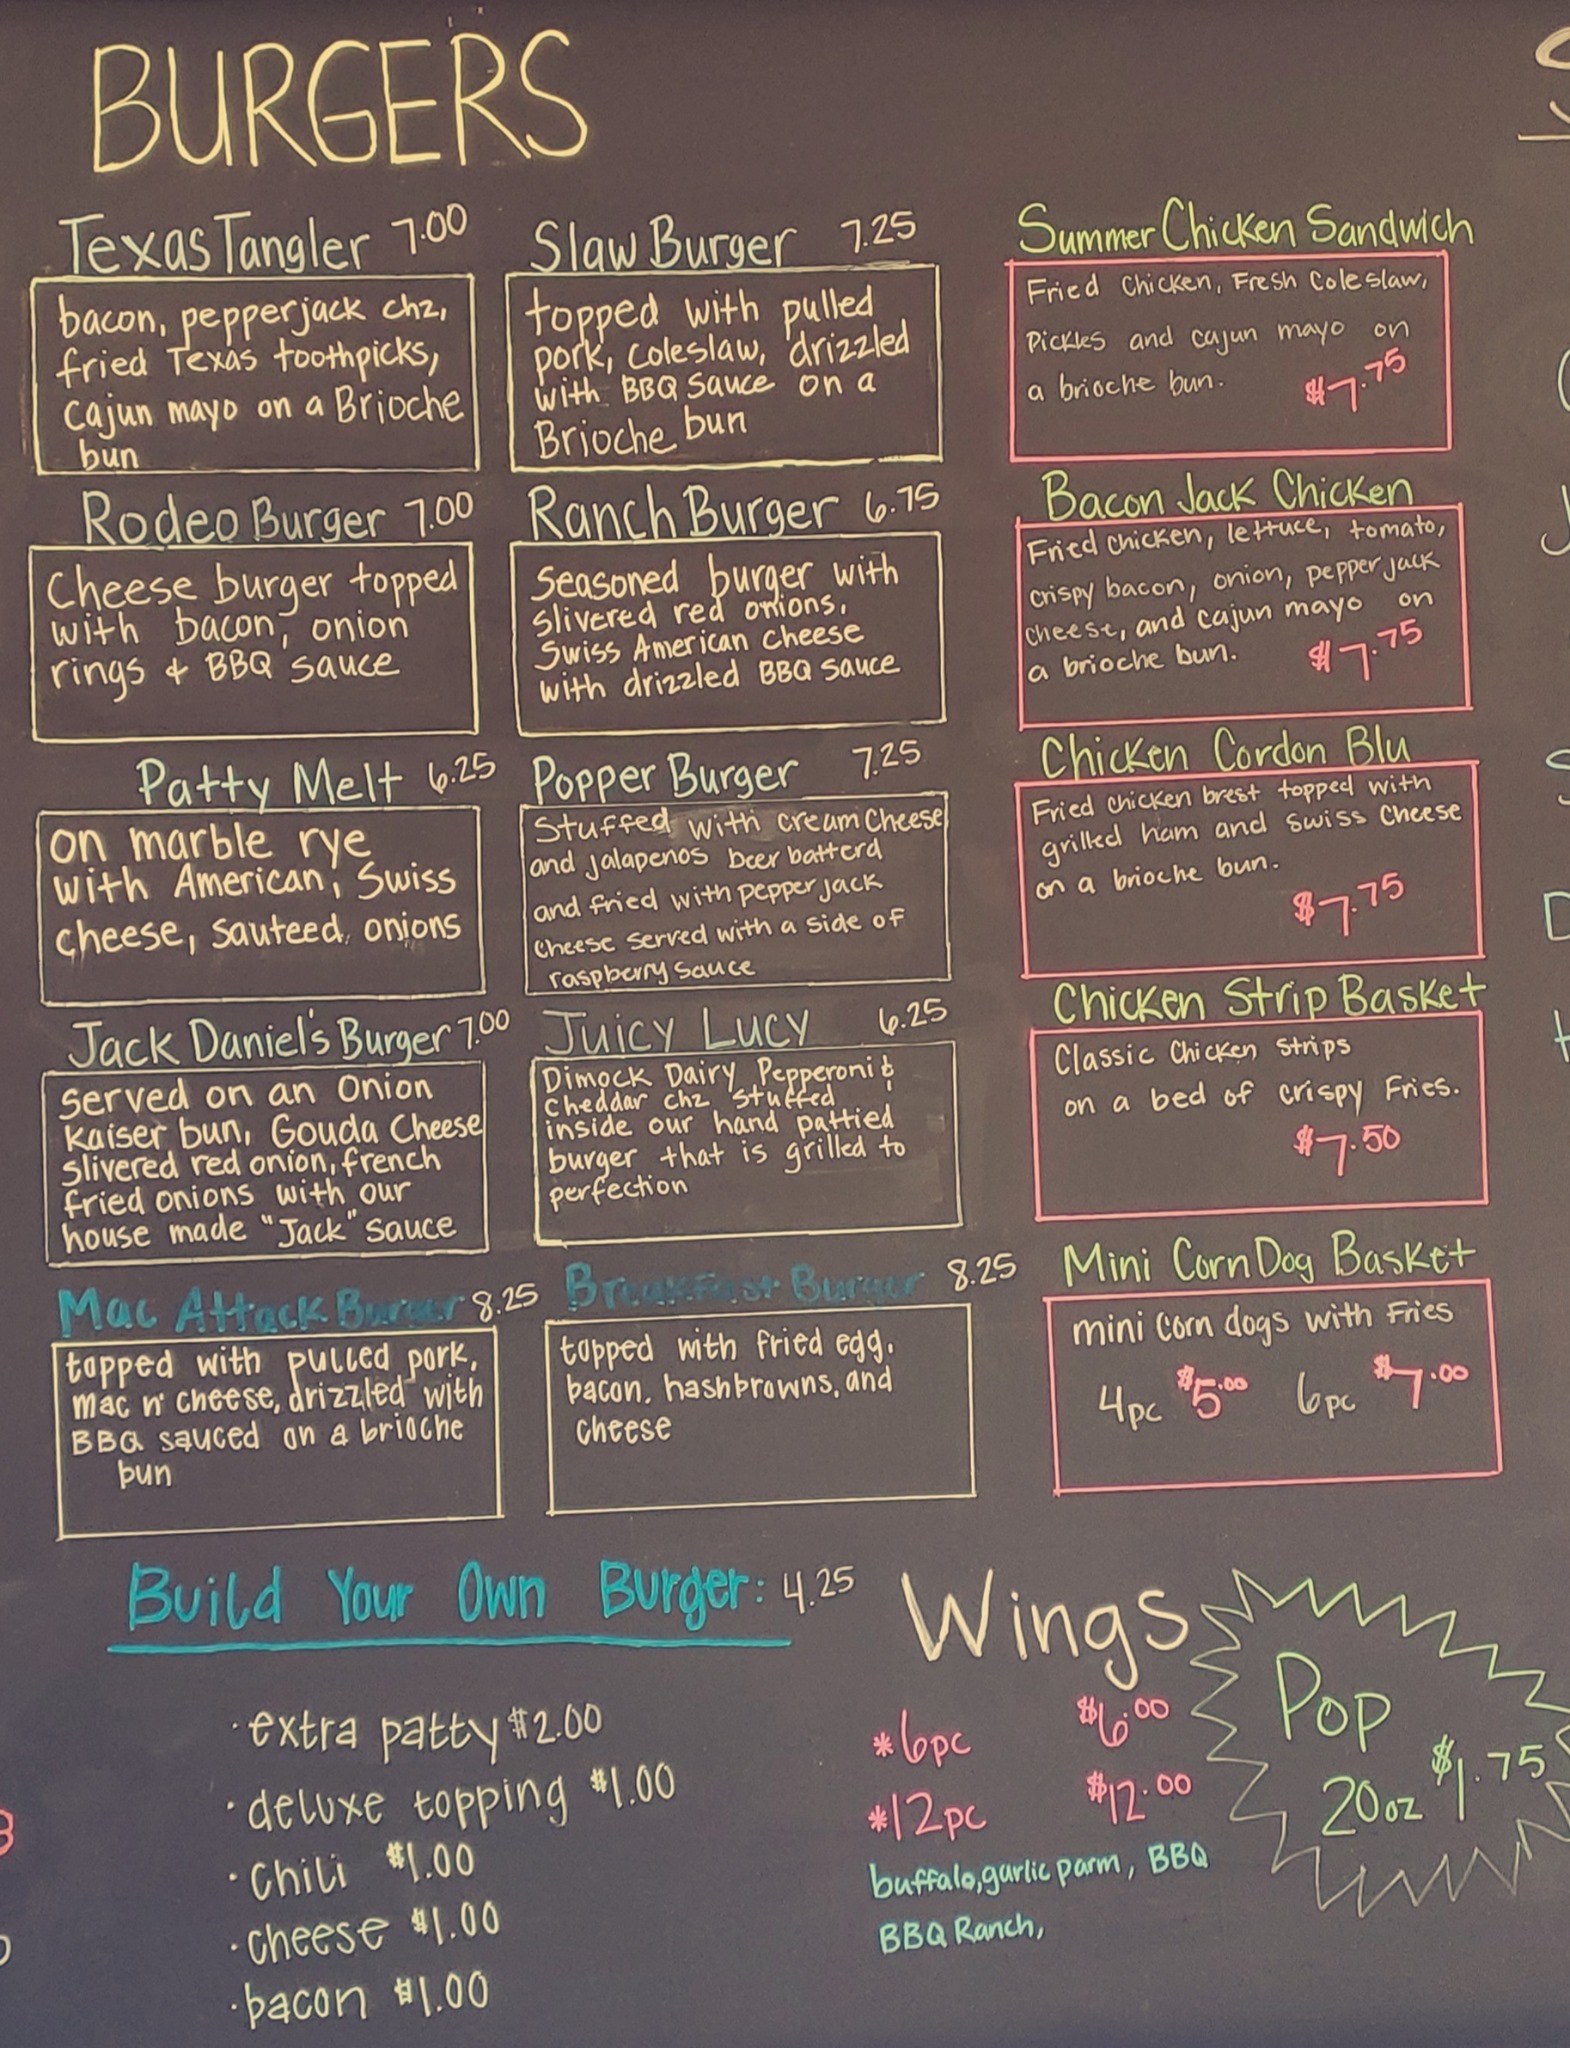 BURGERS
Texas Tangler 7.00
bacon, pepperjack chz,
fried Texas toothpicks,
Cajun mayo on a Brioche
bun
Rodeo Burger 7.00
Cheese burger topped
with bacon, onion
rings & BBQ sauce
Patty Melt 6.25
on marble rye
with American, Swiss
cheese, sauteed onions
Jack Daniel's Burger 7.00
served on an Onion
Kaiser bun, Gouda Cheese
slivered red onion, french
fried onions with our
house made "Jack" sauce
Mac Attack Burger 8.25
topped with pulled pork,
mac n' cheese, drizzled with
BBQ sauced on a brioche
bun
Slaw Burger 7.25
topped with pulled
pork, coleslaw, drizzled
with BBQ sauce on a
Brioche bun
Ranch Burger 6.75
Seasoned burger with
slivered red onions,
Swiss American cheese
with drizzled BBQ sauce
Popper Burger 7.25
Stuffed with cream cheese
and jalapenos beer batterd
and fried with pepper jack
cheese served with a side of
raspberry sauce
Juicy Lucy 6.25
Dimock Dairy Pepperoni &
cheddar chz stuffed
inside our hand pattied
burger that is grilled to
perfection
Breakfast Burger 8.25
topped with fried egg,
bacon, hashbrowns, and
cheese
Summer Chicken Sandwich
Fried Chicken, Fresh Coleslaw,
Pickles and cajun mayo on
a brioche bun. $7.75
Bacon Jack Chicken
Fried chicken, lettuce, tomato,
crispy bacon, onion, pepper jack
cheese, and cajun mayo on
a brioche bun. $7.75
Chicken Cordon Blu
Fried chicken brest topped with
grilled ham and swiss cheese
on a brioche bun.
$7.75
Chicken Strip Basket
Classic Chicken strips
on a bed of crispy Fries.
$7.50
Mini Corn Dog Basket
mini corn dogs with Fries
4pc $5.00 6pc $7.00
Build Your Own Burger: 4.25
· extra patty $2.00
· deluxe topping $1.00
· Chili $1.00
· cheese $1.00
· bacon $1.00
Wings
*6pc $6.00
*12pc $12.00
buffalo, garlic parm, BBQ
BBQ Ranch,
Pop
20oz $1.75